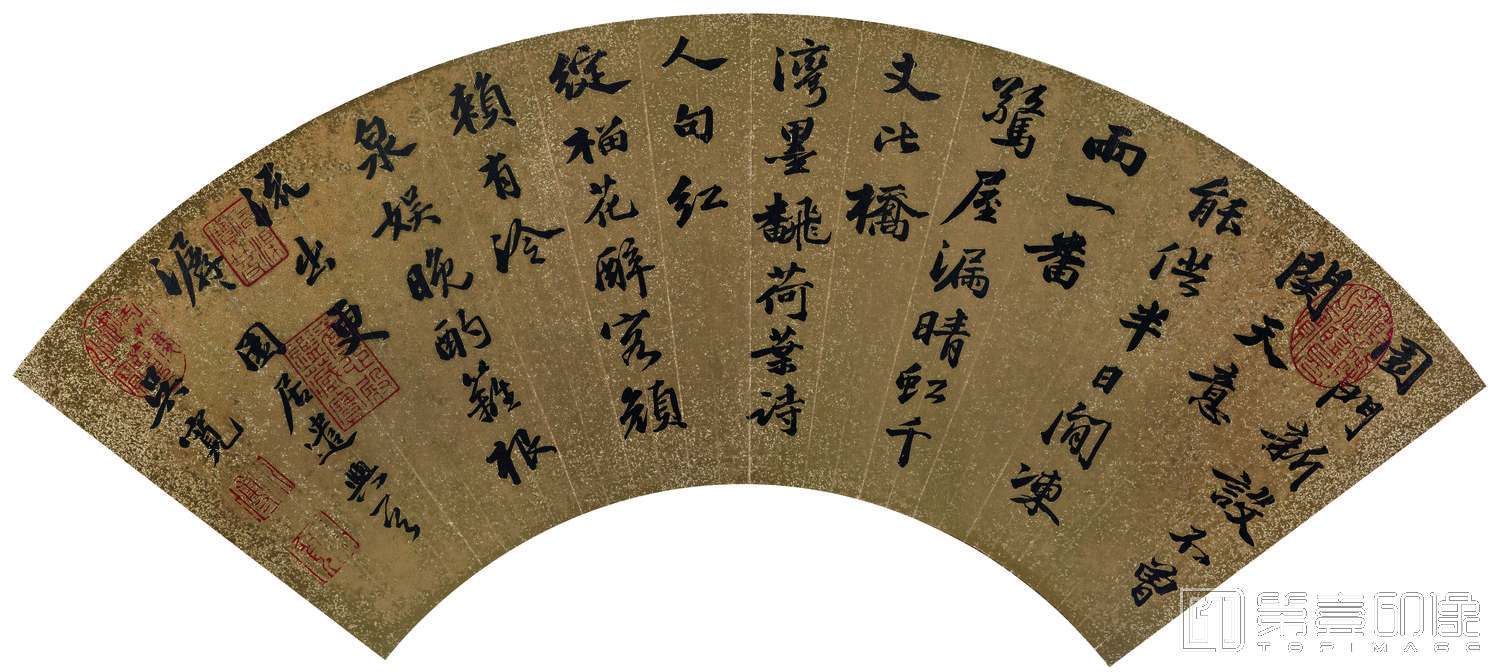 園門新設不曾
關天意
能供半日閒凍
雨一番
驚屋漏晴虹千
丈比橋
灣墨飜荷葉詩
人句紅
綻榴花醉客顏
賴有冷
泉娛晚酌籬根
流出更
潺 園居遣興
吳寬
第壹印像
TOPIMAGE